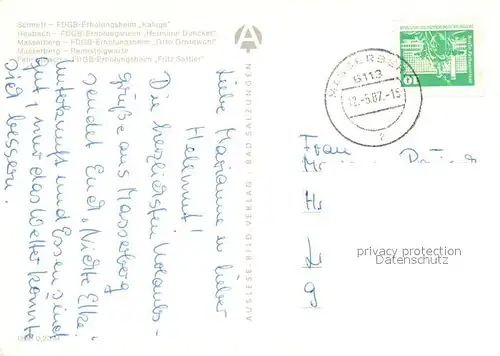 Schnett - FDGB-Erholungsheim „Kaluga"
Heubach - FDGB-Erholungsheim „Hermann Duncker"
Masserberg - FDGB-Erholungsheim „Otto Grotewohl"
Masserberg - Rennsteigwarte
Fehrenbach - FDGB-Erholungsheim „Fritz Sattler"
AUSLESE-BILD-VERLAG · BAD SALZUNGEN
MASSERBERG
6113
12.-5.87.-15
a
10
Liebe Marianne u. lieber
Helmut!
Die herzlichsten Urlaubs-
grüße aus Masserberg
sendet Euch „Nichte Elke".
Unterkunft und Essen sind
gut, nur das Wetter könnte
sich bessern.
Frau
privacy protection
Datenschutz